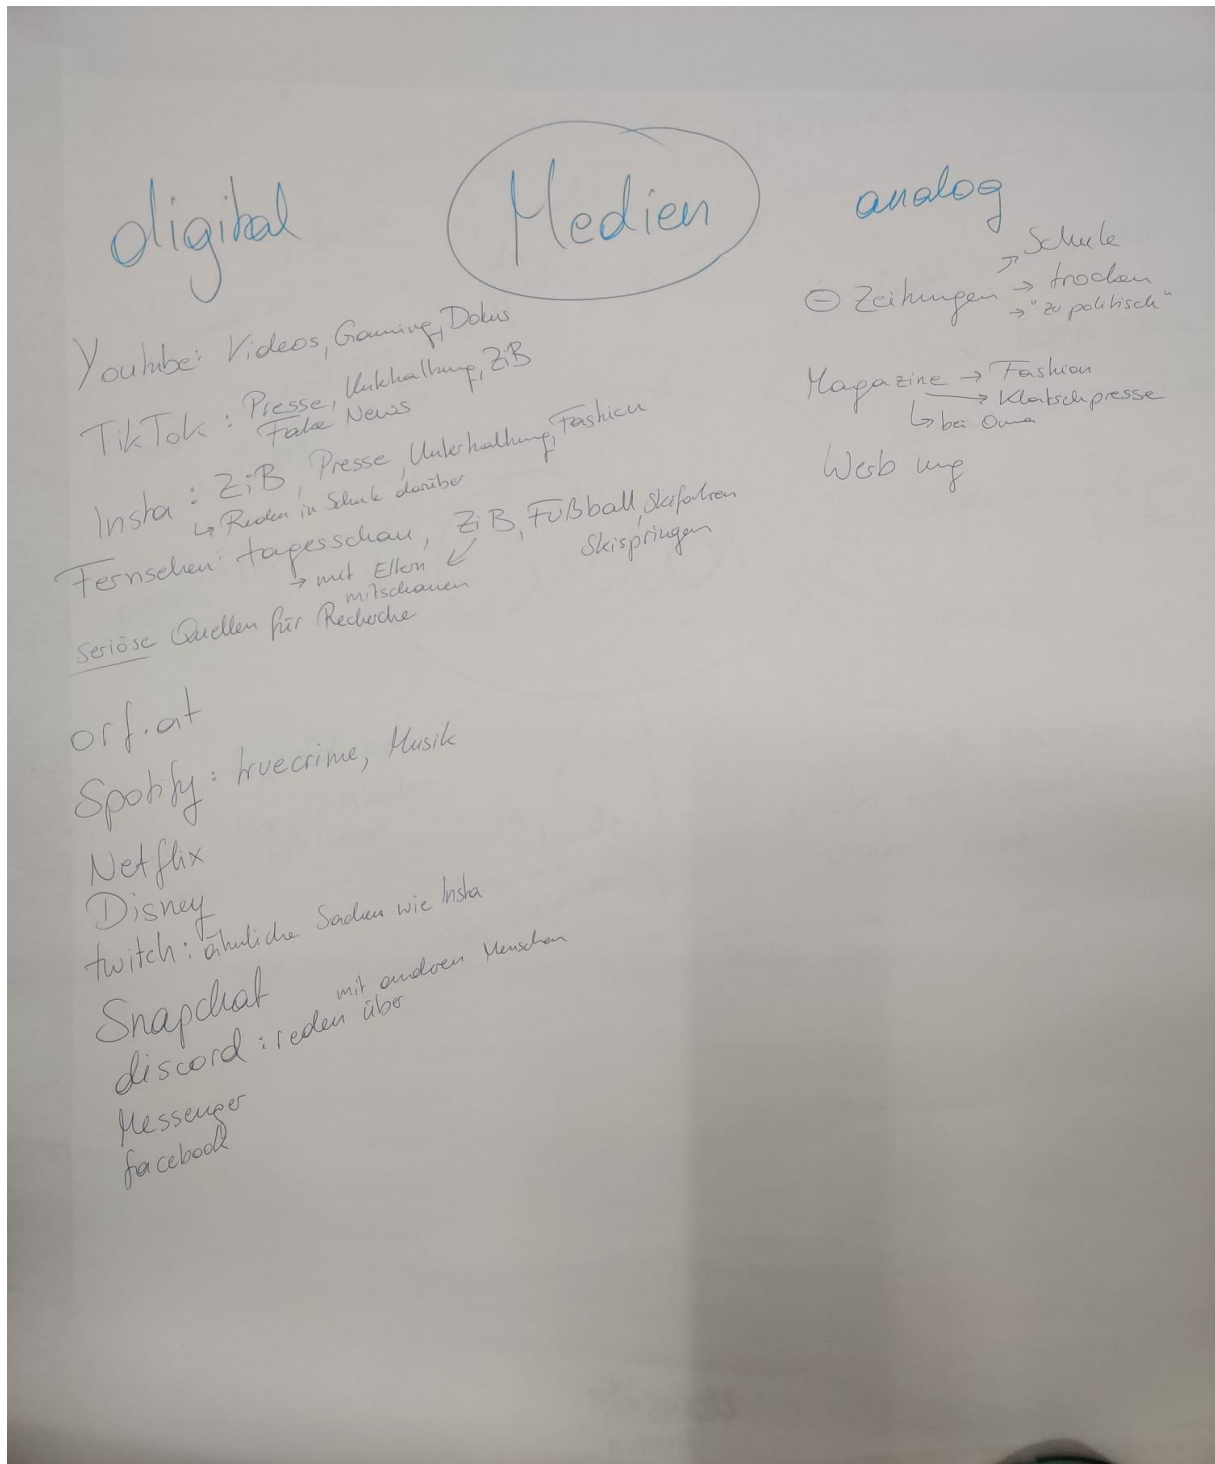 Medien
digital
Youtube: Videos, Gaming, Dokus
TikTok: Presse, Unterhaltung, ZiB
Fake News
Insta: ZiB, Presse, Unterhaltung, Fashion
↳ Reden in Schule darüber
Fernsehen: tagesschau, ZiB, Fußball, Skifahren
Skispringen
→ mit Eltern
mitschauen
seriöse Quellen für Recherche
orf.at
Spotify: truecrime, Musik
Netflix
Disney
twitch: ähnliche Sachen wie Insta
Snapchat
mit anderen Menschen
discord: reden über
Messenger
facebook
analog
→ Schule
⊖ Zeitungen → trocken
→ "zu politisch"
Magazine → Fashion
→ Klatschpresse
↳ bei Oma
Werbung